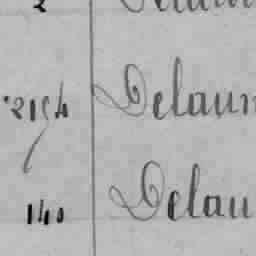 2154 Delaun
140 Delau